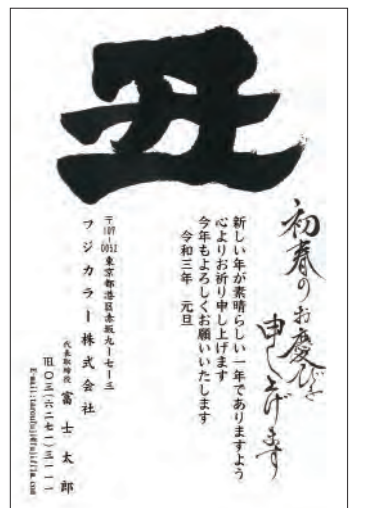 丑
初春のお慶びを
申し上げます
新しい年が素晴らしい一年でありますよう
心よりお祈り申し上げます
今年もよろしくお願いいたします
令和三年　元旦
〒107-0052 東京都港区赤坂九ー七ー三
フジカラー株式会社
代表取締役 富士太郎
TEL〇三(六二七一)三一一一
E-mail:taroufuji@fujifilm.com